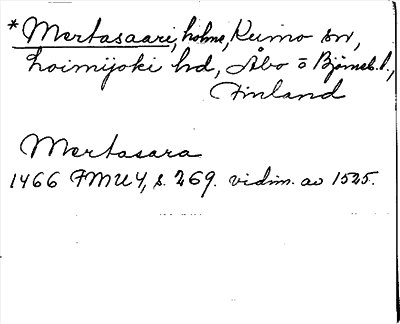 *Mertasaari, holme, Keimo sn,
Loimijoki hd, Åbo o Björneb. l.,
Finland
Mertasara
1466 FMU 4, s. 269. vidim. av 1525.